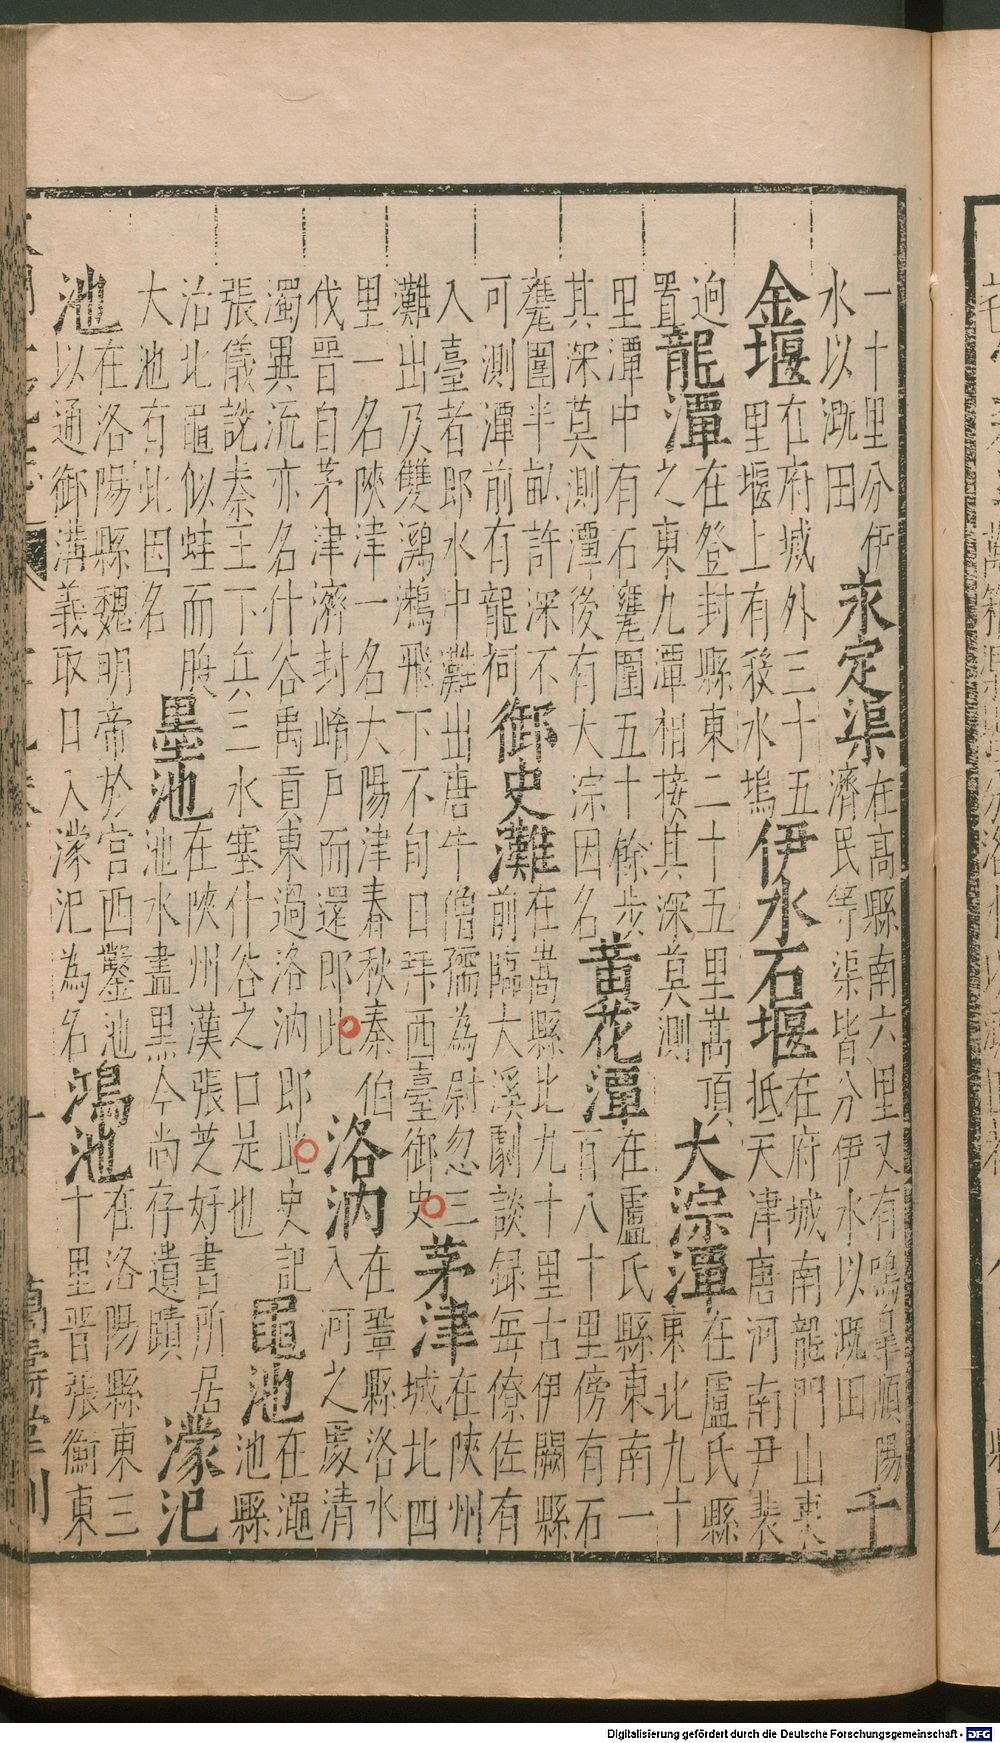 一十里分伊水以溉田永定渠在高縣南六里又有鳴皋順陽濟民等渠皆分伊水以溉田千
金堰在府城外三十五里堰上有發水塢伊水石堰在府城南龍門山東抵天津唐河南尹裴
迥置龍潭在登封縣東二十五里嵩頂之東九潭相接其深莫測大淙潭在盧氏縣東北九十
里潭中有石甕圍五十餘步其深莫測潭後有大淙因名黃花潭在盧氏縣東南一百八十里傍有石
甕圍半畝許深不可測潭前有龍祠御史灘在嵩縣北九十里古伊闕縣前臨大溪劇談録每僚佐有
入臺者郎水中灘出唐牛僧孺為尉忽三灘出及雙鸂鶒飛下不旬日拜西臺御史茅津在陝州城北四
里一名陝津一名大陽津春秋秦伯伐晉自茅津濟封崤尸而還即此洛汭在鞏縣洛水入河之處清
濁異流亦名什谷禹貢東過洛汭即此史記張儀說秦王下兵三水塞什谷之口是也黽池在澠池縣
治北黽似蛙而腹大池有此因名墨池在陝州漢張芝好書所居池水盡黑今尚存遺蹟濛汜
池在洛陽縣魏明帝於宮西鑿池以通御溝義取日入濛汜為名鴻池在洛陽縣東三十里晉張衡東
萬壽堂刊
Digitalisierung gefördert durch die Deutsche Forschungsgemeinschaft - DFG